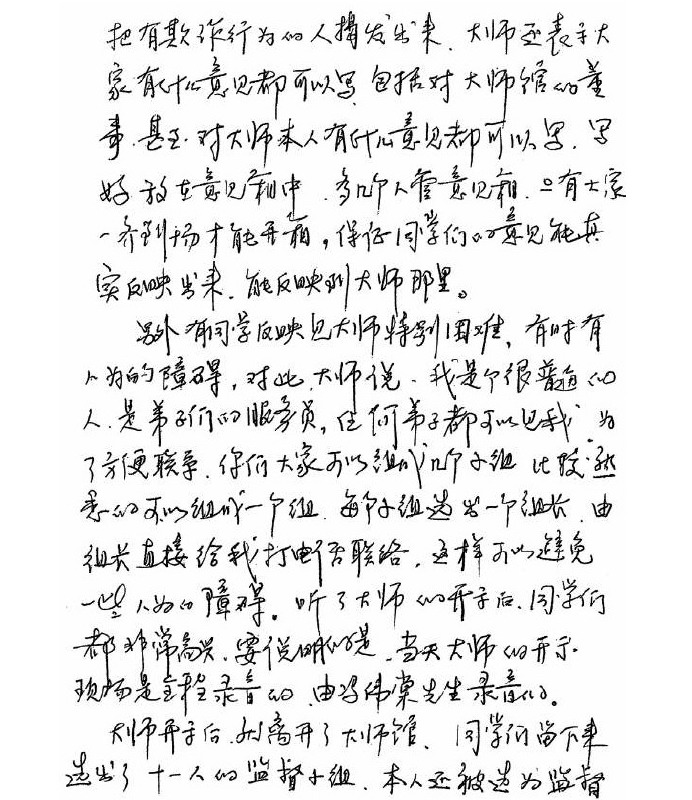 把有欺诈行为的人揭发出来、大师还表示大
家有什么意见都可以写,包括对大师馆的董
事、甚至对大师本人有什么意见都可以写。写
好放在意见箱中、多几个人管意见箱、只有大家
一齐到场才能开箱,保证同学们的意见能真
实反映出来、能反映到大师那里。
另外有同学反映见大师特别困难,有时有
人为的障碍,对此,大师说、我是个很普通的
人、是弟子们的服务员,任何弟子都可以见我,为
了方便联系、你们大家可以组成几个小组,比较熟
悉的可以组成一个组、每个小组选出一个组长、由
组长直接给我打电话联络、这样可以避免
一些人为的障碍。听了大师的开示后、同学们
都非常高兴、要说明的是、当天大师的开示
现场是全程录音的、由冯伟棠先生录音的。
大师开示后、就离开了大师馆、同学们留下来
选出了十一人的监督小组、本人还被选为监督